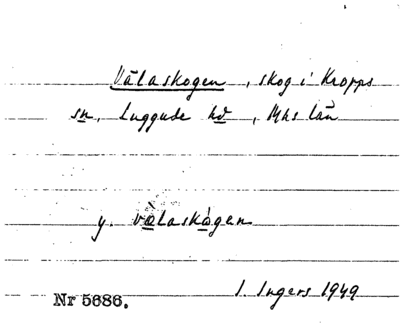 Välaskogen, skog i Kropps
sn, Luggude hd, Mhs län
y. välaskògen
I. Ingers 1949
Nr 5686.